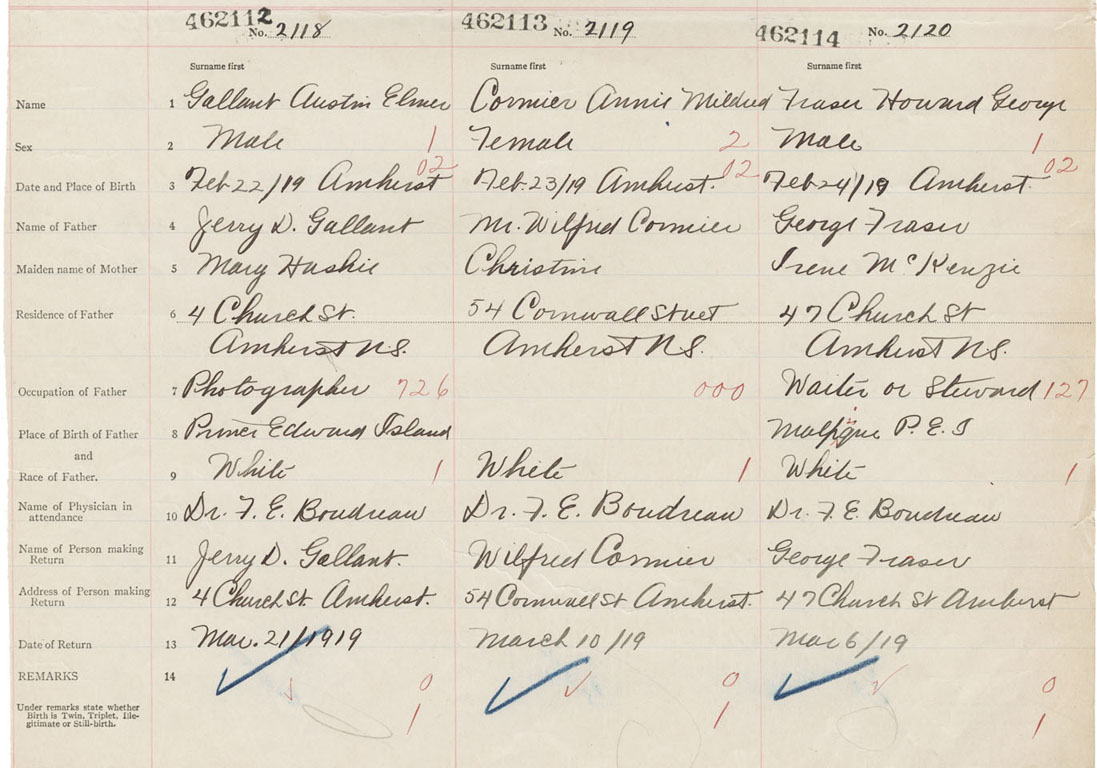 462112 No. 2118 462113 No. 2119 462114 No. 2120
Surname first Surname first Surname first
Name 1 Gallant Austin Elmer Cormier Annie Mildred Fraser Howard George
Sex 2 Male 1 Female 2 Male 1
02 02 02
Date and Place of Birth 3 Feb 22/19 Amherst Feb. 23/19 Amherst. Feb 24/19 Amherst.
Name of Father 4 Jerry D. Gallant Mr. Wilfred Cormier George Fraser
Maiden name of Mother 5 Mary Huskie Christine Irene McKenzie
Residence of Father 6 4 Church St. 54 Cornwall Street 47 Church St
Amherst N.S. Amherst N.S. Amherst N.S.
Occupation of Father 7 Photographer 726 000 Waiter or Steward 127
Place of Birth of Father 8 Prince Edward Island Malpque P.E.I
and
Race of Father. 9 White 1 White 1 White 1
Name of Physician in
attendance 10 Dr. F. E. Boudreau Dr. F. E. Boudreau Dr. F. E. Boudreau
Name of Person making
Return 11 Jerry D. Gallant. Wilfred Cormier George Fraser
Address of Person making
Return 12 4 Church St. Amherst. 54 Cornwall St Amherst. 47 Church St Amherst
Date of Return 13 Mar. 21/1919 March 10/19 Mar 6/19
REMARKS 14 0 0 0
Under remarks state whether
Birth is Twin, Triplet, Ille-
gitimate or Still-birth. 1 1 1